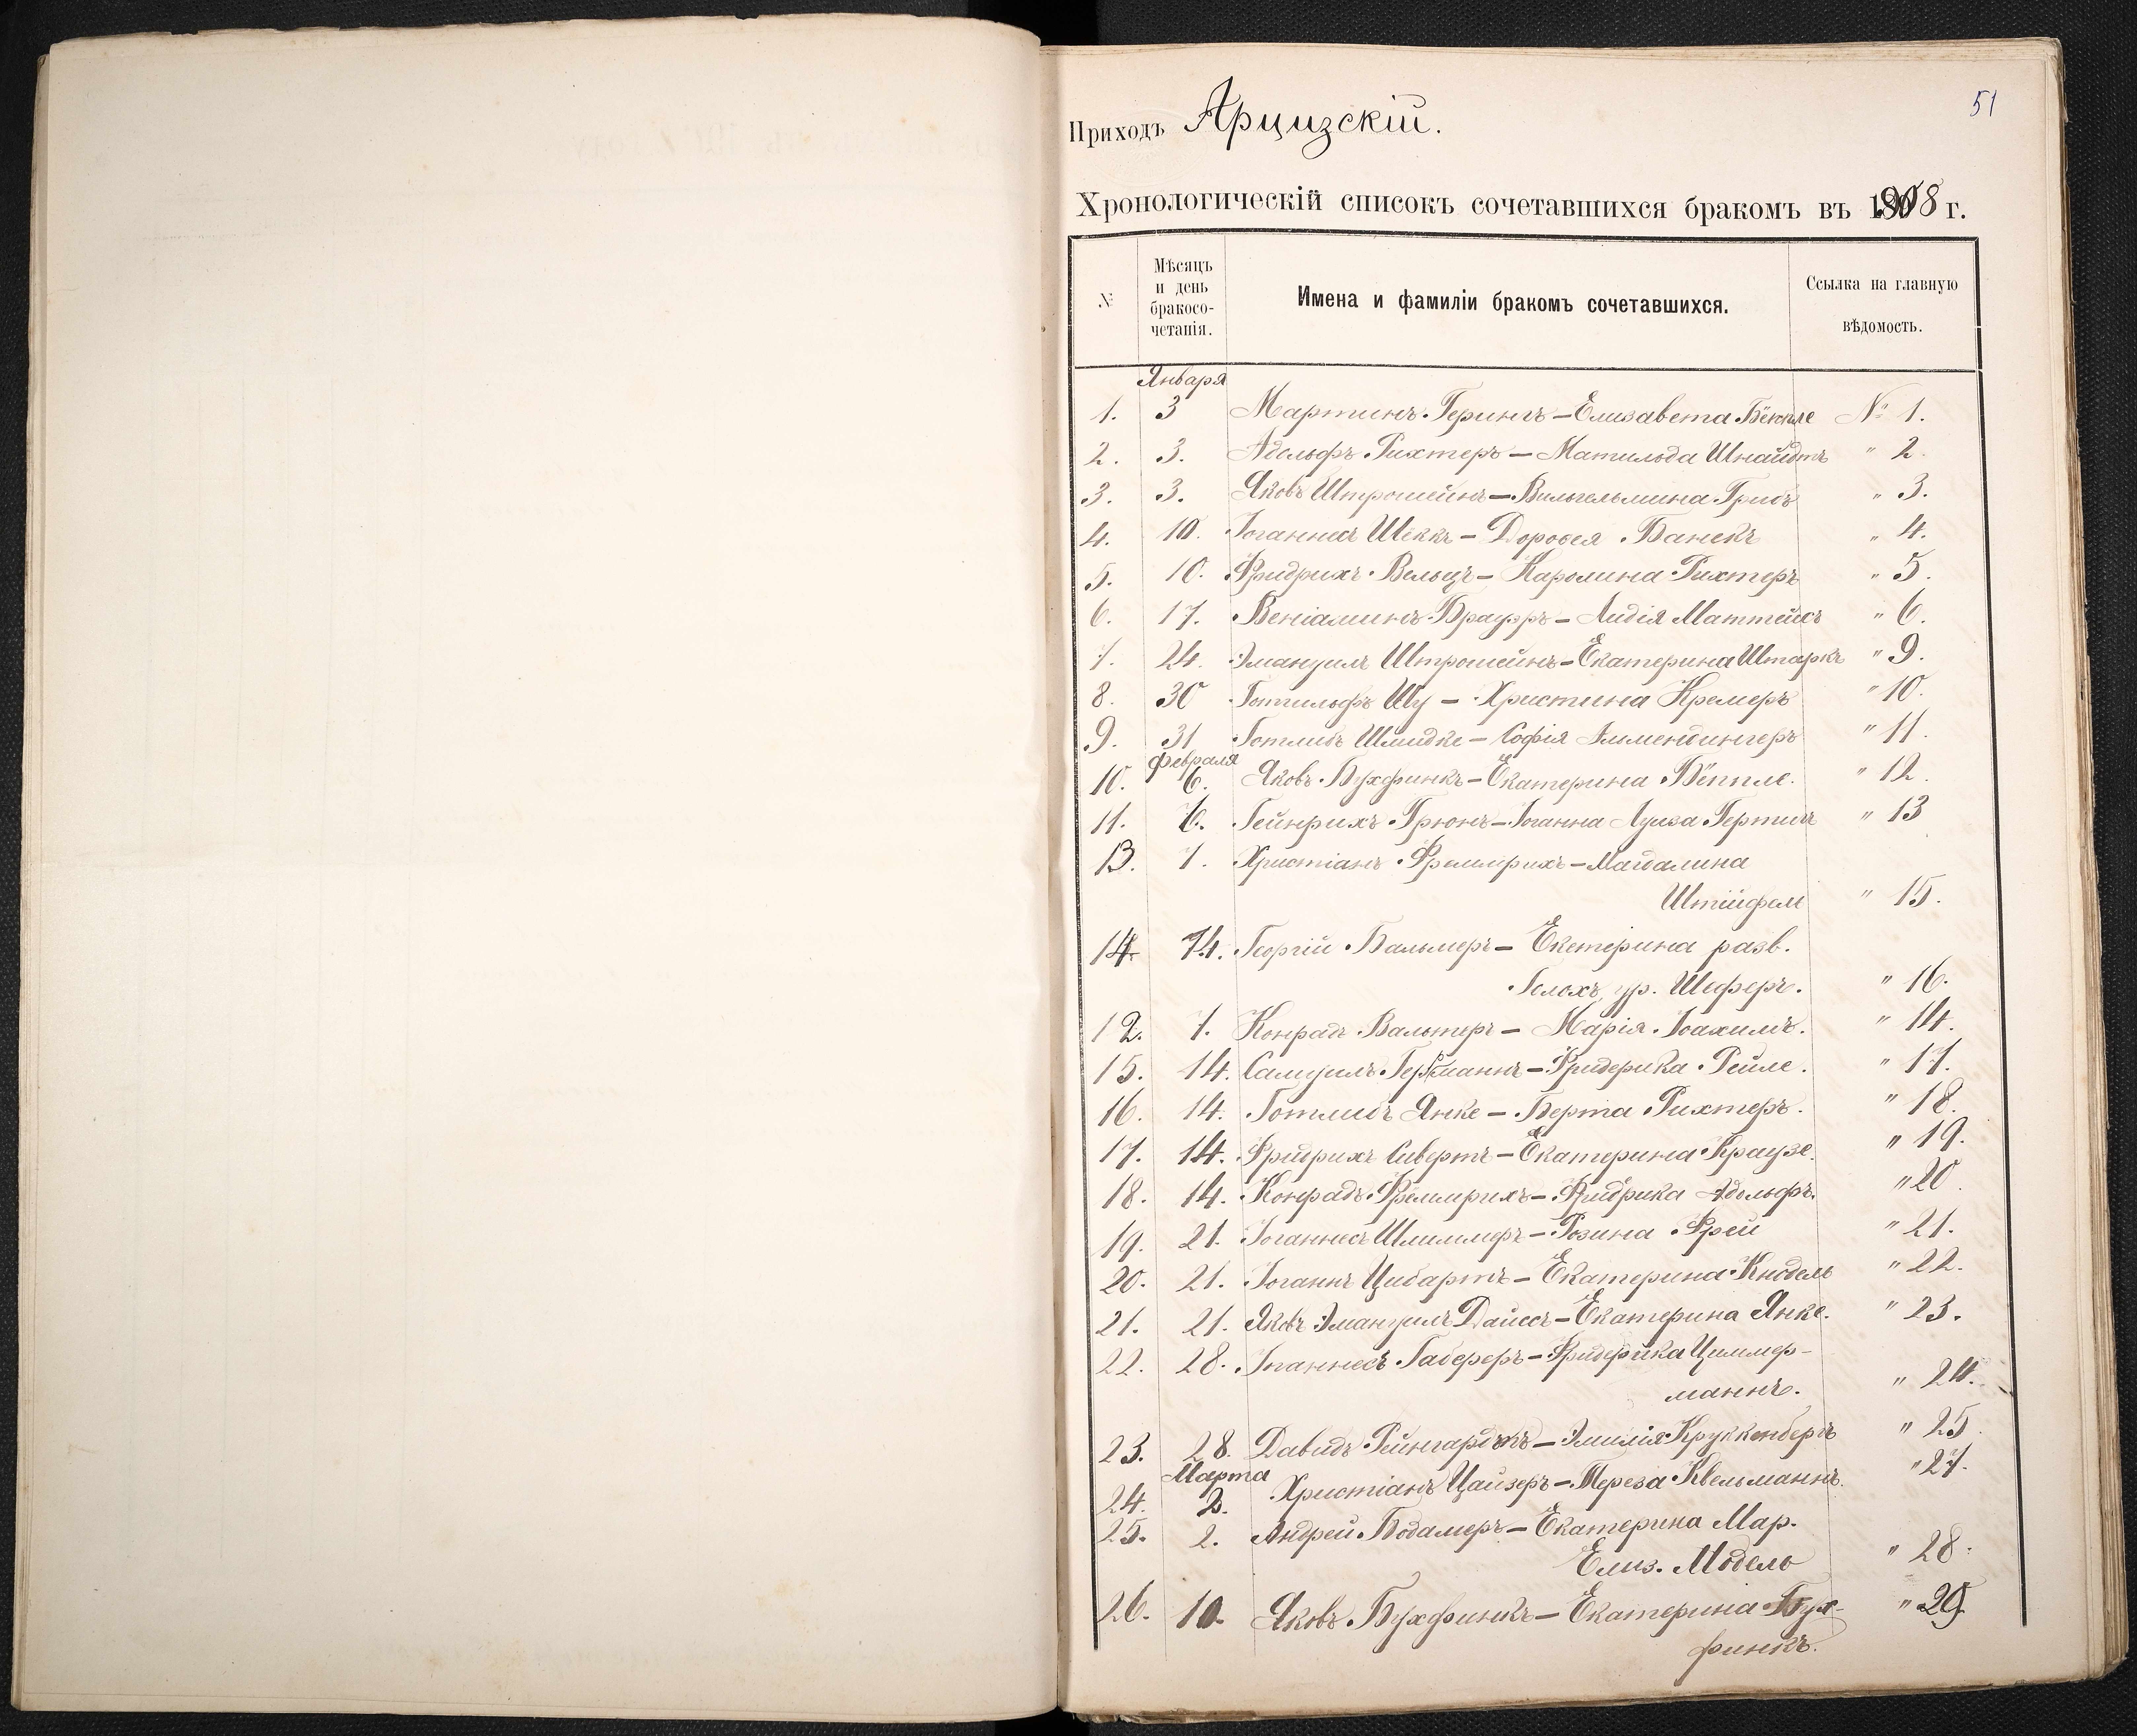 51
Приходъ Арцизскій.
Хронологическій списокъ сочетавшихся бракомъ въ 1908 г.
№ Мѣсяцъ и день бракосочетанія. Имена и фамиліи бракомъ сочетавшихся. Ссылка на главную вѣдомость.
Января
1. 3 Мартинъ Герингъ – Елизавета Бёппле № 1.
2. 3. Адольфъ Рихтеръ – Матильда Шнайдтъ " 2.
3. 3. Яковъ Штрошейнъ – Вильгельмина Грибъ " 3.
4. 10. Іоганнесъ Шёккъ – Доровея Банекъ " 4.
5. 10. Фридрихъ Вельцъ – Каролина Рихтеръ " 5.
6. 17. Веніаминъ Брауэръ – Лидія Маттейсъ " 6.
7. 24. Эмануилъ Штрошейнъ – Екатерина Штаркъ " 9.
8. 30 Готгильфъ Шу – Христина Кремеръ " 10.
9. 31 Готлибъ Шмидке – Софія Альмендингеръ " 11.
Февраля
10. 6. Яковъ Бухфинкъ – Екатерина Бёппле. " 12
11. 6. Гейнрихъ Грюнъ – Іоганна Луиза Гертигъ " 13
13. 7. Христіанъ Фреммрихъ – Магдалина
Штийфел " 15.
14. 14. Георгій Бальмеръ – Екетерина разв.
Гелохъ, ур. Шеферъ. " 16.
12. 7. Конрадъ Вальтеръ – Марія Іоахимъ. " 14.
15. 14. Самуилъ Германнъ – Фридерика Рейле. " 17.
16. 14. Готлибъ Янке – Берта Рихтеръ. " 18.
17. 14. Фридрихъ Сивертъ – Екатерина Краузе. " 19.
18. 14. Конрадъ Фреммрихъ – Фридрика Адольфъ. " 20.
19. 21. Іоганнесъ Шлиммеръ – Розина Фрей " 21.
20. 21. Іоганнъ Цибартъ – Екатерина Кнодель " 22.
21. 21. Яковъ Эмануилъ Дайссъ – Екатерина Янке. " 23.
22. 28. Іоганнесъ Габереръ – Фридерика Циммер-
маннъ. " 24.
23. 28. Давидъ Рейнгардтъ – Эмилія Круккенбергъ " 25.
Марта
24. 2. Христіанъ Цайзеръ – Тереза Квельманнъ. " 27.
25. 2. Андрей Бодамеръ – Екатерина Мар.
Елиз. Мödель " 28.
26. 10. Яковъ Бухфинкъ – Екатерина Бух-
финкъ. " 29